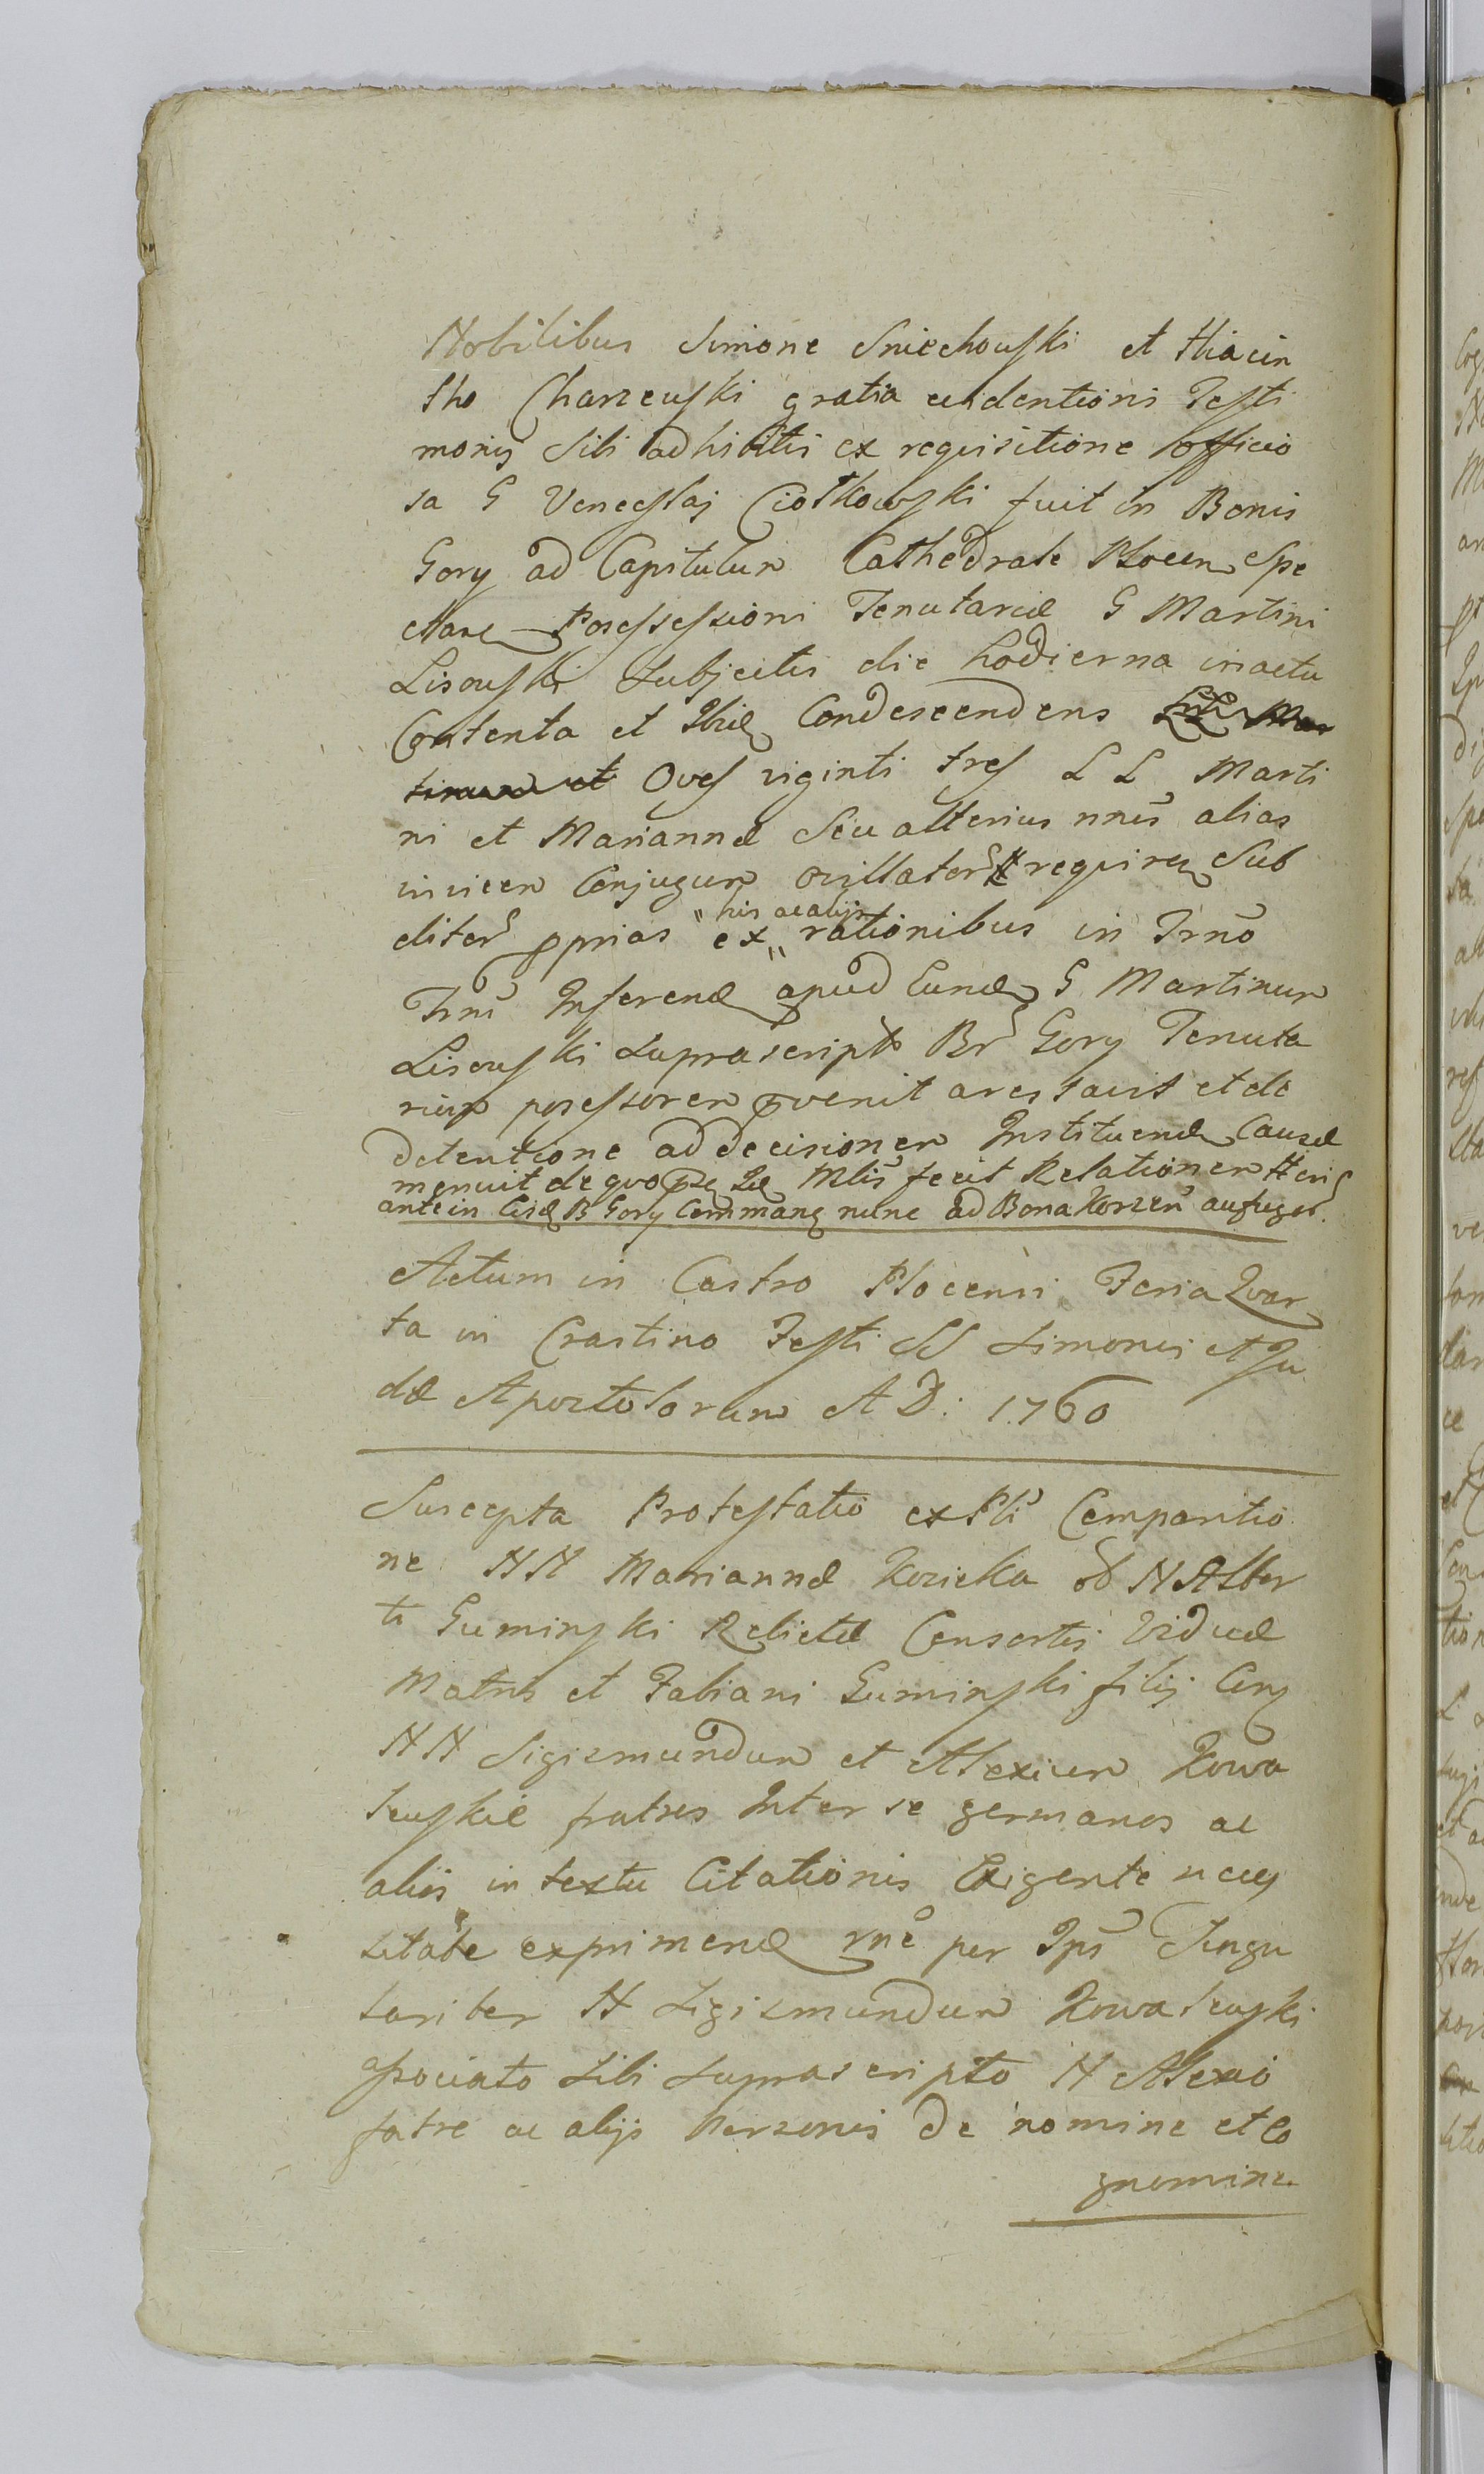 Nobilibus Simone Sniechowski et Hiacin
tho Charzewski gratia evidentioris Testi
monij sibi adhibitis ex requisitione officio
sa G Venceslaj Ciołkowski fuit in Bonis
Gory ad Capitulum Cathedrale Plocen Spe
ctan Possessioni Tenutariæ G Martini
Lisowski Subjectis die hodierna in actu
Contenta et Ibid Condescendens
Oves viginti tres L L Marti
ni et Mariannæ seu alterius nnis alias
invicem Conjugum requiren Sub
ditor pprias ex "his ac alijs" rationibus in Trno
Trni Inferend apud Eund G Martinum
Lisowski suprascript Br Gory Tenuta
rium possessorem pvenit arestavit et de
detentione ad decisionem Instituend Causæ
monuit de quo Mlis fecit Relationem
ante in B Gory Comman nunc ad Bona Korzen aufuger
Actum in Castro Plocensi Feria Quar
ta in Crastino Festi SS Simonis et Ju
dæ Apostolorum A D: 1760
Suscepta Protestatio ex Pli Comparitio
ne NN Mariannæ Kozicka ol N Alber
ti Guminski Relictæ Consortis Viduæ
Matris et Fabiani Guminski filij Con
NN Sigismundum et Alexium Kowa
lewskie fratres Inter se germanos ac
alios in textu Citationis Exigente neces
sitate exprimend rne per Ips Singu
lariter N Sigismundum Kowalewski
associato sibi suprascripto N Alexio
fatre ac alijs Personis de nomine et co
gnomine